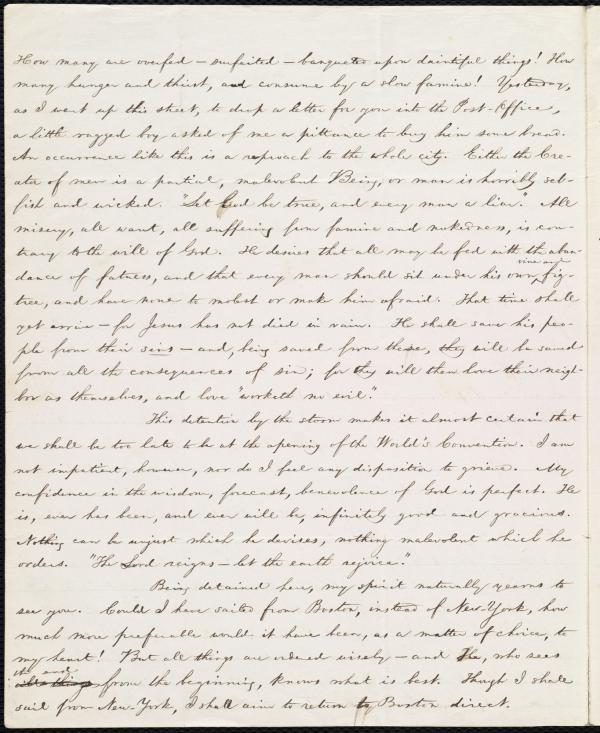 How many are overfed — surfeited — banqueted upon daintiful things! How
many hunger and thirst, and consume by a slow famine! Yesterday,
as I went up this street, to drop a letter for you into the Post-Office,
a little ragged boy asked of me a pittance to buy him some bread.
An occurrence like this is a reproach to the whole city. Either the Cre-
ator of men is a partial, malevolent Being, or man is horribly sel-
fish and wicked. "Let God be true, and every man a liar." All
misery, all want, all suffering from famine and nakedness, is con-
trary to the will of God. He desires that all may be fed with the abun-
dance of fatness, and that every man should sit under his own vine and fig-
tree, and have none to molest or make him afraid. That time shall
yet arrive — for Jesus has not died in vain. He shall save his peo-
ple from their sins — and, being saved from these, they will be saved
from all the consequences of sin; for they will then love their neigh-
bor as themselves, and love "worketh no evil."
This detention by the storm makes it almost certain that
we shall be too late to be at the opening of the World's Convention. I am
not impatient, however, nor do I feel any disposition to grieve. My
confidence in the wisdom, forecast, benevolence of God is perfect. He
is, ever has been, and ever will be, infinitely good and gracious.
Nothing can be unjust which he devises, nothing malevolent which he
orders. "The Lord reigns — let the earth rejoice."
Being detained here, my spirit naturally yearns to
see you. Could I have sailed from Boston, instead of New-York, how
much more preferable would it have been, as a matter of choice, to
my heart! But all things are ordered wisely — and He, who sees
the end from the beginning, knows what is best. Though I shall
sail from New-York, I shall aim to return to Boston direct.